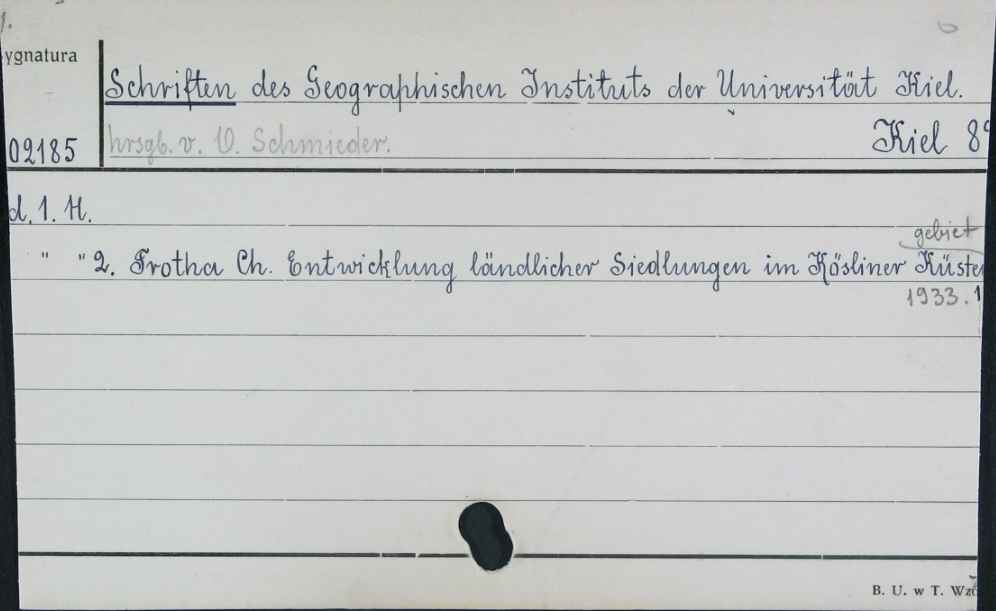 ygnatura
Schriften des Geographischen Instituts der Universität Kiel.
hrsgb. v. O. Schmieder.
Kiel 8º
02185
d. 1. H.
gebiet
" " 2. Trotha Ch. Entwicklung ländlicher Siedlungen im Kösliner Küste
1933. 1
B. U. w T. Wz